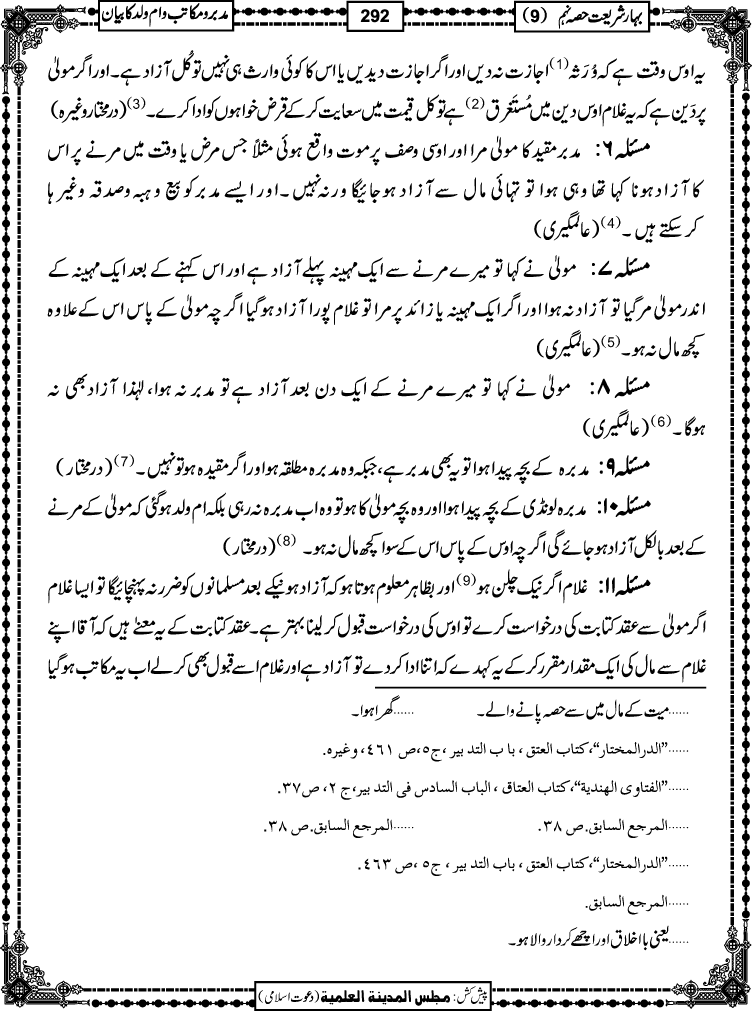 بہارِ شریعت حصہ نہم (9)
292
مدبر و مکاتب و ام ولد کا بیان
یہ اوس وقت ہے کہ وُرَثہ(1) اجازت نہ دیں اور اگر اجازت دیدیں یا اس کا کوئی وارث ہی نہیں تو کُل آزاد ہے۔ اور اگر مولیٰ
پر دَین ہے کہ یہ غلام اوس دین میں مُستَغرق(2) ہے تو کل قیمت میں سعایت کرکے قرض خواہوں کو ادا کرے۔(3) (درمختار وغیرہ)
مسئلہ ۶: مدبر مقید کا مولیٰ مرا اور اوسی وصف پر موت واقع ہوئی مثلاً جس مرض یا وقت میں مرنے پر اس
کا آزاد ہونا کہا تھا وہی ہوا تو تہائی مال سے آزاد ہوجائیگا ورنہ نہیں۔ اور ایسے مدبر کو بیع و ہبہ و صدقہ وغیرہا
کرسکتے ہیں۔(4) (عالمگیری)
مسئلہ ۷: مولیٰ نے کہا تو میرے مرنے سے ایک مہینہ پہلے آزاد ہے اور اس کہنے کے بعد ایک مہینہ کے
اندر مولیٰ مرگیا تو آزاد نہ ہوا اور اگر ایک مہینہ یا زائد پر مرا تو غلام پورا آزاد ہوگیا اگرچہ مولیٰ کے پاس اس کے علاوہ
کچھ مال نہ ہو۔(5) (عالمگیری)
مسئلہ ۸: مولیٰ نے کہا تو میرے مرنے کے ایک دن بعد آزاد ہے تو مدبر نہ ہوا، لہٰذا آزاد بھی نہ
ہوگا۔(6) (عالمگیری)
مسئلہ ۹: مدبرہ کے بچہ پیدا ہوا تو یہ بھی مدبر ہے، جبکہ وہ مدبرہ مطلقہ ہو اور اگر مقیدہ ہو تو نہیں۔(7) (درمختار)
مسئلہ ۱۰: مدبرہ لونڈی کے بچہ پیدا ہوا اور وہ بچہ مولیٰ کا ہو تو وہ اب مدبرہ نہ رہی بلکہ ام ولد ہوگئی کہ مولیٰ کے مرنے
کے بعد بالکل آزاد ہوجائے گی اگرچہ اوس کے پاس اس کے سوا کچھ مال نہ ہو۔(8) (درمختار)
مسئلہ ۱۱: غلام اگر نیک چلن ہو(9) اور بظاہر معلوم ہوتا ہو کہ آزاد ہونیکے بعد مسلمانوں کو ضرر نہ پہنچائیگا تو ایسا غلام
اگر مولیٰ سے عقد کتابت کی درخواست کرے تو اوس کی درخواست قبول کرلینا بہتر ہے۔ عقد کتابت کے یہ معنٰے ہیں کہ آقا اپنے
غلام سے مال کی ایک مقدار مقرر کرکے یہ کہدے کہ اتنا ادا کردے تو آزاد ہے اور غلام اسے قبول بھی کرلے اب یہ مکاتب ہوگیا
......میت کے مال میں سے حصہ پانے والے۔ ......گھرا ہوا۔
......”الدرالمختار“، کتاب العتق، باب التدبیر، ج٥، ص ٤٦١، وغیرہ.
......”الفتاوی الهندية“، کتاب العتاق، الباب السادس فی التدبیر، ج ٢، ص٣٧.
......المرجع السابق.ص ٣٨. ......المرجع السابق.ص ٣٨.
......”الدرالمختار“، کتاب العتق، باب التدبیر، ج٥، ص ٤٦٣.
......المرجع السابق.
......یعنی با اخلاق اور اچھے کردار والا ہو۔
پیش کش: مجلس المدینة العلمیة (دعوت اسلامی)